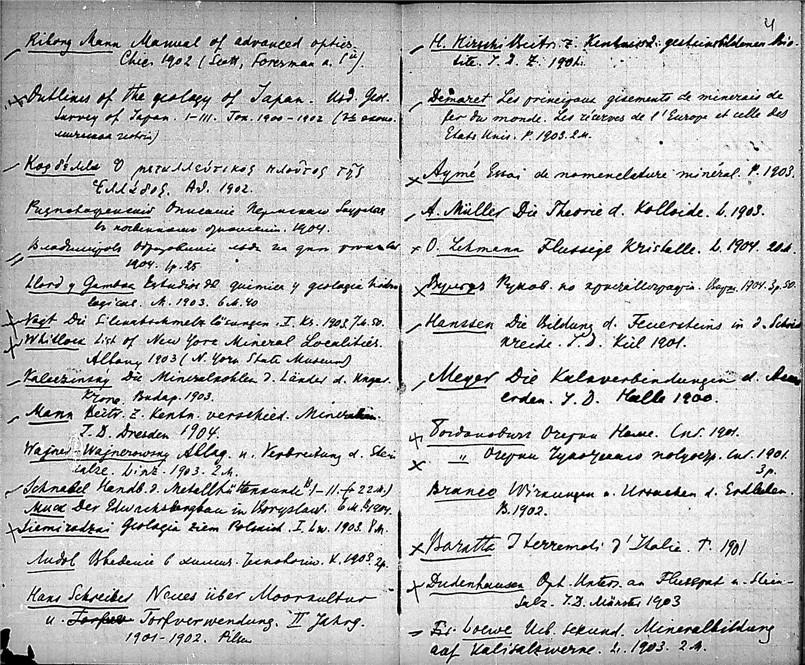 Riborg Mann Manual of advanced optics
Chic. 1902 (Scott, Foresman a. Cº)
Outlines of the geology of Japan. Geol.
Survey of Japan. I-III. Tok. 1900-1902
Κορδέλλα Ὁ μεταλλευτικος πλοῦτος τῆς
Ἑλλάδος. Αθ. 1902.
Описание
1904.
Владимиров Образование льда на дне
1904. 1р. 25
Llord y Gamboa Estudios de quimica y geologia hidro
logicas. M. 1903. 6 M. 40
Vogt Die Silicatschmelzlösungen. I. Kr. 1903. 7 M. 50.
Whitlock List of New York Mineral Localities
Albany 1903 (N. York State Museum)
Kalecsinszky Die Mineralkohlen d. Länder d. Ungar.
Krone. Budap. 1903.
Mann Beitr. z. Kentn. verschied. Mineralien.
I. D. Dresden 1904.
Ablag. u. Verbreitung d. Stein
salze. Linz. 1903. 2 M.
Schnabel Handb. d. Metallhüttenkunde I-II. (22 M.)
Muck Der Erdwachsbergbau in Boryslaw. 6 M. 1904.
Siemiradzki Geologia ziem Polskich. I. Lw. 1903. 8 M.
Введение в химич. 1903. 2р.
Hans Schreiber Neues über Moorcultur
u. Torfverwendung. II Jahrg.
1901-1902. Pilsen
4
H. Hirschi Beitr. z. Kentniss d. gesteinbildenen Bio-
tite. I. D. Z. 1901.
Demaret Les principaux gisements de minerais de
fer du monde. Les réserves de l'Europe et celle des
Etats Unis. P. 1903. 2 M.
Aymé Essai de nomenclature minéral. P. 1903.
A. Müller Die Theorie d. Kolloide. L. 1903.
O. Lehmann Flussige Kristalle. L. 1904. 20 M.
Руков. по кристаллографии. 1904. 3р. 50.
Hanssen Die Bildung d. Feuersteins in d. Schreib
kreide. I. D. Kiel 1901.
Meyer Die Kalaverbindungen d.
erden. I. D. Halle 1900.
Богданович Очерки Спб. 1901.
" Очерки Чукотского полуостр. Спб. 1901.
3р.
Branco Wirkungen u. Ursachen d. Erdbeben.
B. 1902.
Baratta I terremoti d'Italie. T. 1901
Dudenhausen Opt. Unters. an Flusspat u. Stein-
salz. I. D. Münster 1903
Er. Loewe Ueb. sekund. Mineralbildung
auf Kalisalzwerke. L. 1903. 2 M.